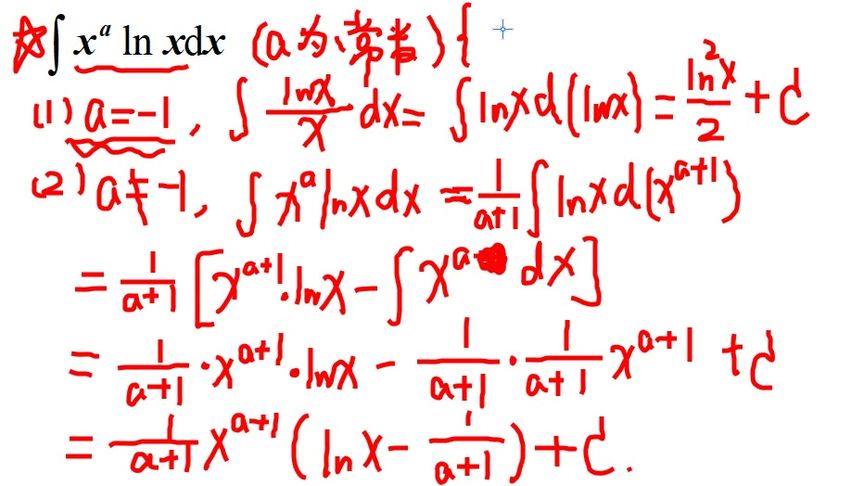 ☆∫ xᵃ ln xdx (a为常数){
(1) a=-1, ∫ lnx/x dx = ∫ lnx d(lnx) = ln²x/2 + C
(2) a≠-1, ∫ xᵃ lnx dx = 1/(a+1) ∫ lnx d(xᵃ⁺¹)
= 1/(a+1) [xᵃ⁺¹·lnx - ∫ xᵃ dx]
= 1/(a+1) · xᵃ⁺¹ · lnx - 1/(a+1) · 1/(a+1) xᵃ⁺¹ + C
= 1/(a+1) xᵃ⁺¹ (ln x - 1/(a+1)) + C.